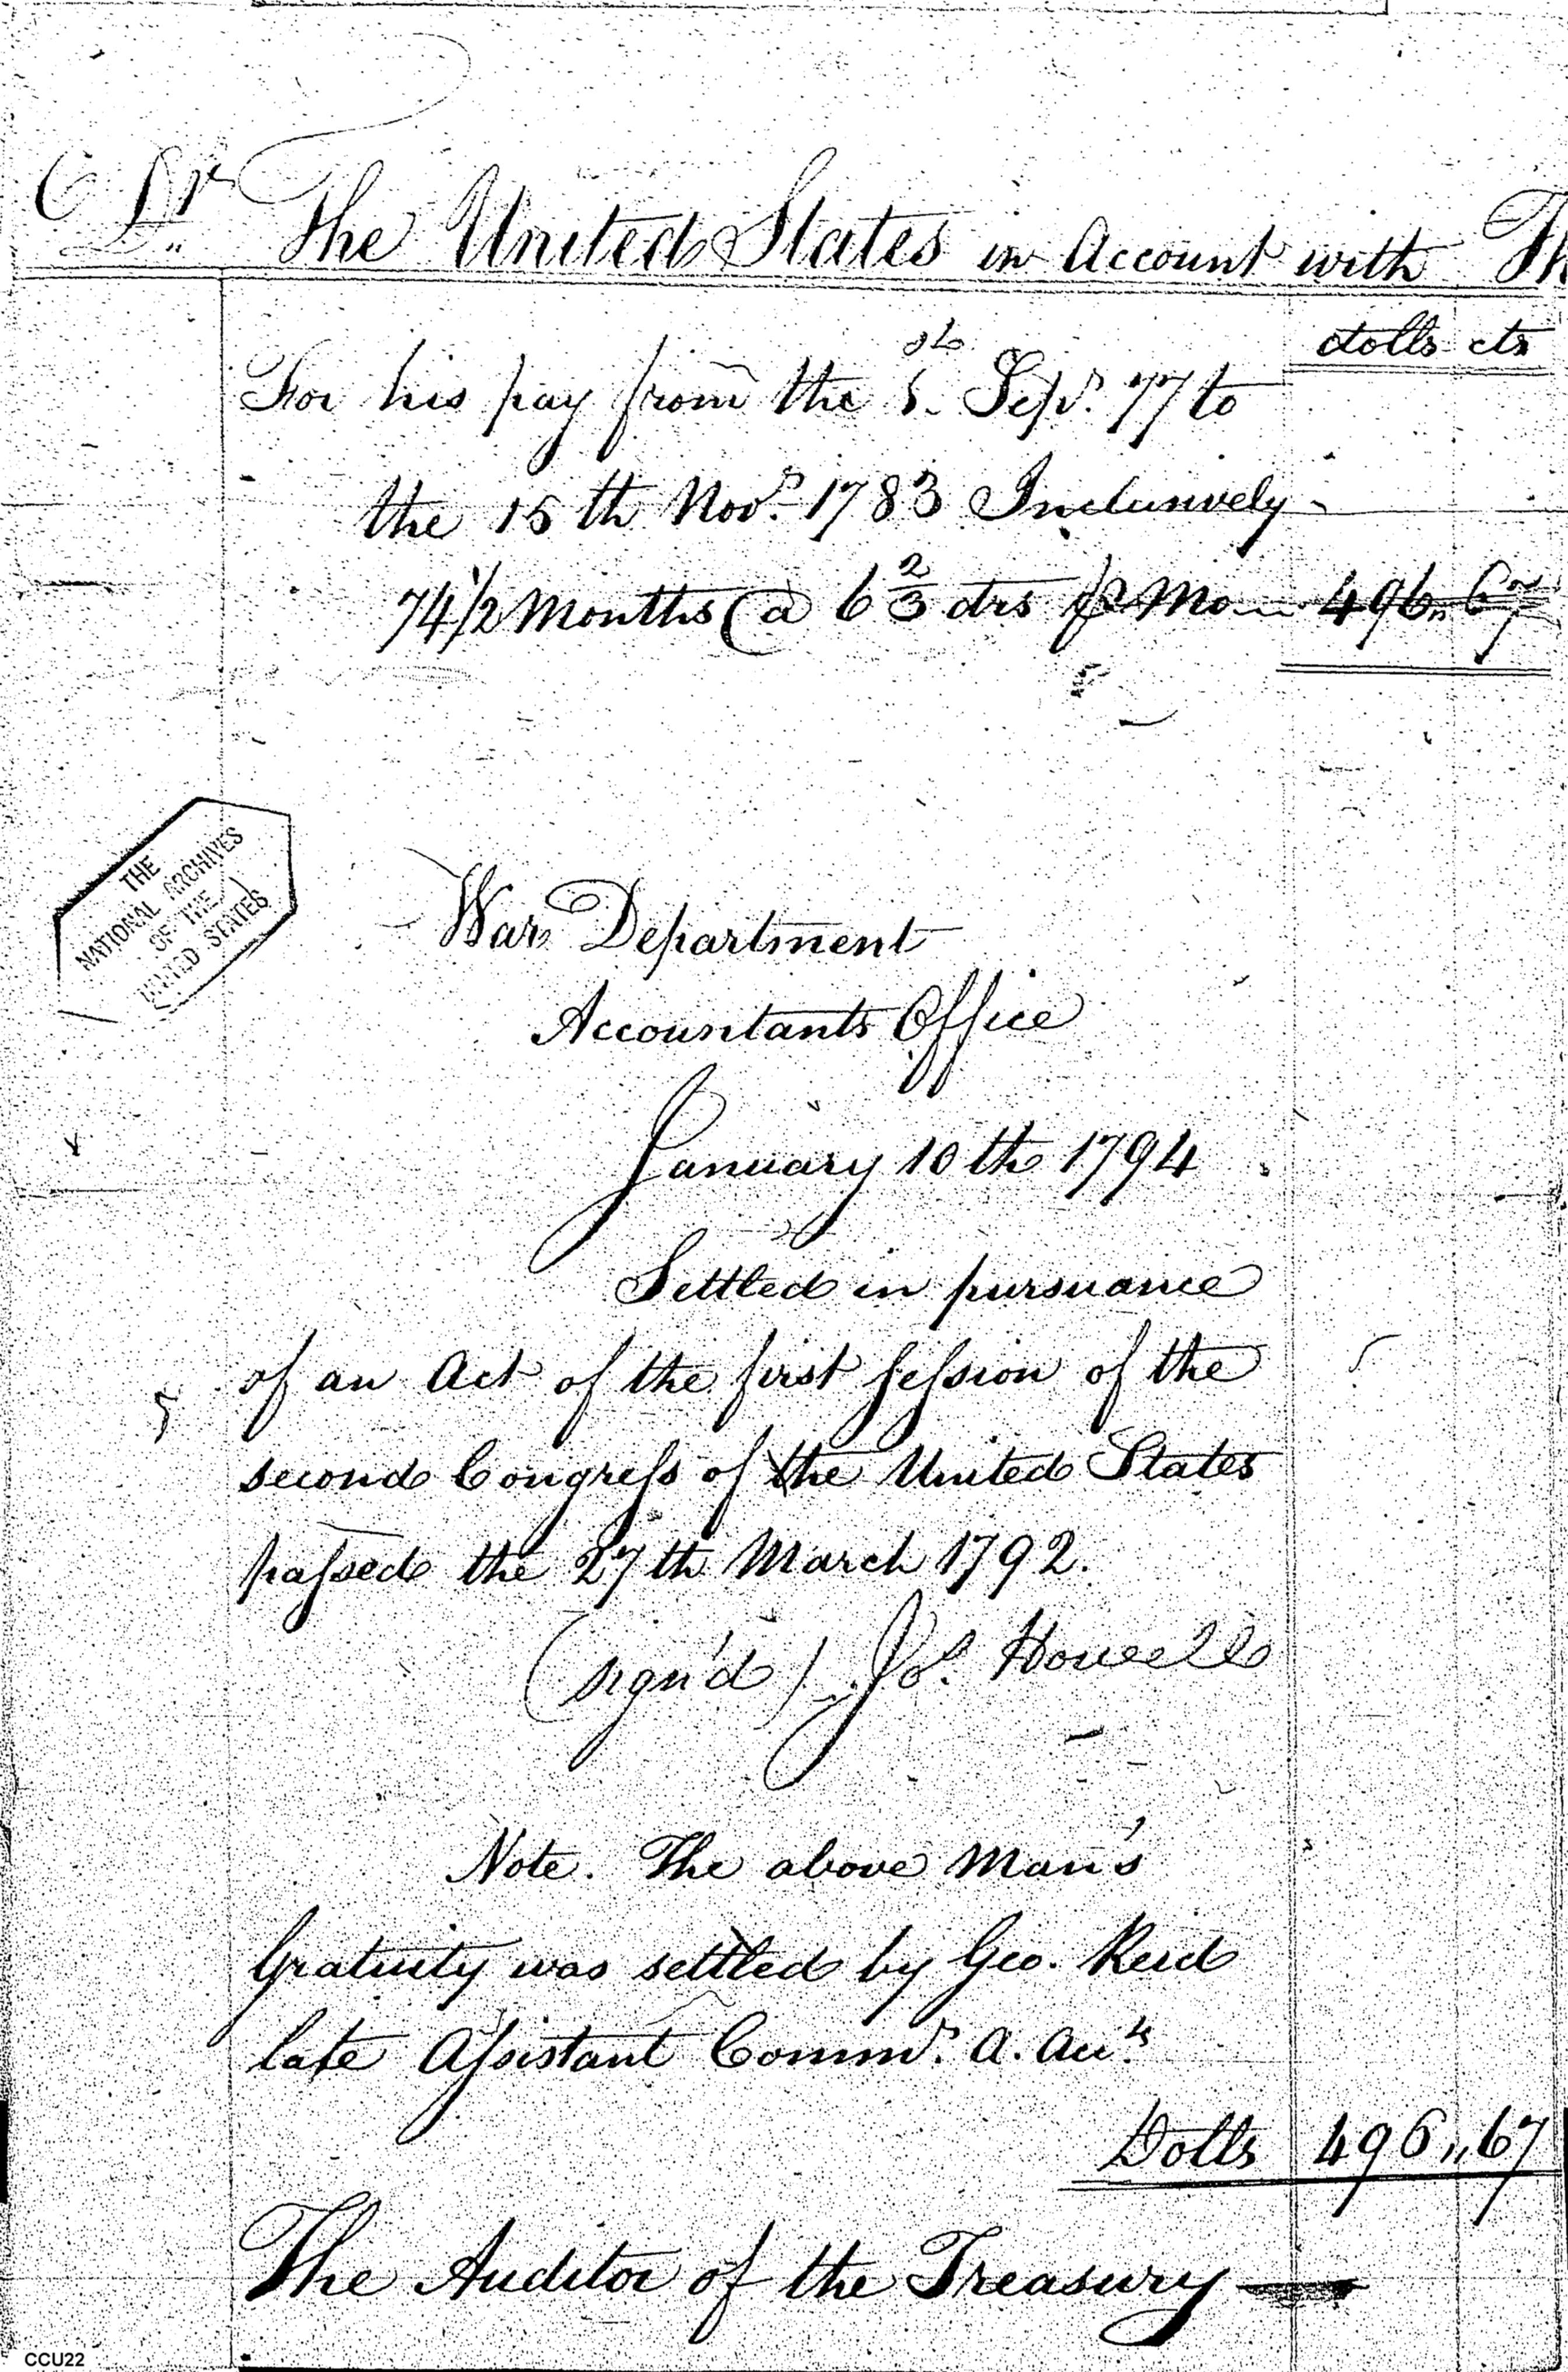 C Dr The United States in Account with Th
dolls cts
For his pay from the 1st Sepr. 77 to
the 15th Novr. 1783 Inclusively
74 1/2 Months @ 6 2/3 drs pr Mo 496,, 67
THE
NATIONAL ARCHIVES
OF THE
UNITED STATES
War Department
Accountants Office
January 10th 1794
Settled in pursuance
of an Act of the first Session of the
second Congress of the United States
passed the 27th March 1792.
(sign'd) Jos. Howell
Note. The above Man's
Gratuity was settled by Geo. Reid
late Assistant Commr. A. Accts
Dolls 496,, 67
The Auditor of the Treasury
CCU22